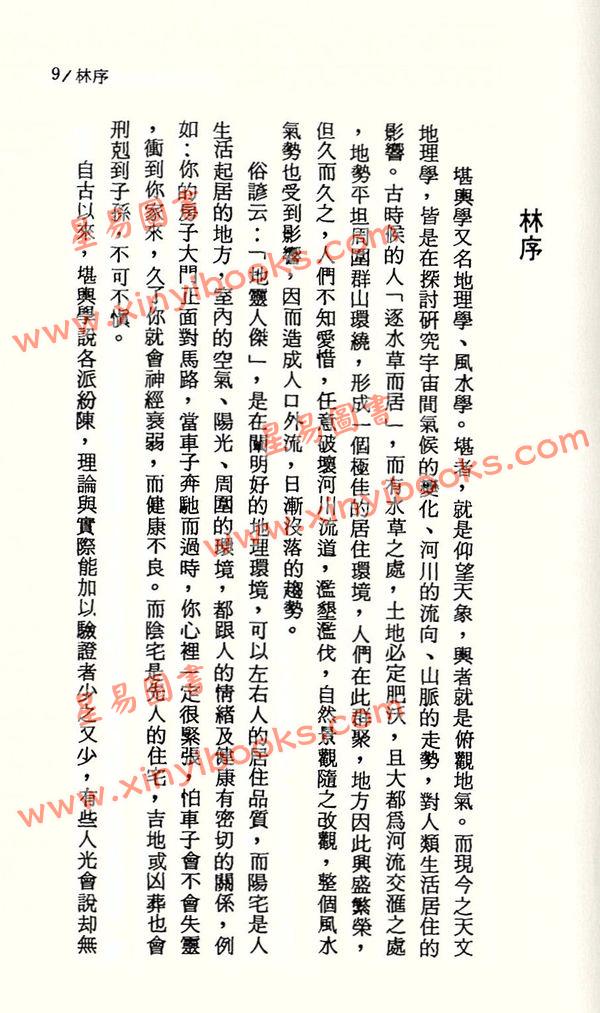 9/林序
林序
堪輿學又名地理學、風水學。堪者，就是仰望天象，輿者就是俯觀地氣。而現今之天文
地理學，皆是在探討研究宇宙間氣候的變化、河川的流向、山脈的走勢，對人類生活居住的
影響。古時候的人「逐水草而居」，而有水草之處，土地必定肥沃，且大都為河流交滙之處
，地勢平坦周圍群山環繞，形成一個極佳的居住環境，人們在此群聚，地方因此興盛繁榮，
但久而久之，人們不知愛惜，任意破壞河川流道，濫墾濫伐，自然景觀隨之改觀，整個風水
氣勢也受到影響，因而造成人口外流，日漸沒落的趨勢。
俗諺云：「地靈人傑」，是在闡明好的地理環境，可以左右人的居住品質，而陽宅是人
生活起居的地方，室內的空氣、陽光、周圍的環境，都跟人的情緒及健康有密切的關係，例
如：你的房子大門正面對馬路，當車子奔馳而過時，你心裡一定很緊張，怕車子會不會失靈
，衝到你家來，久了你就會神經衰弱，而健康不良。而陰宅是先人的住宅，吉地或凶葬也會
刑剋到子孫，不可不慎。
自古以來，堪輿學說各派紛陳，理論與實際能加以驗證者少之又少，有些人光會說却無
星易圖書
www.xinyibooks.com
星易圖書
www.xinyibooks.com
星易圖書
www.xinyibooks.com